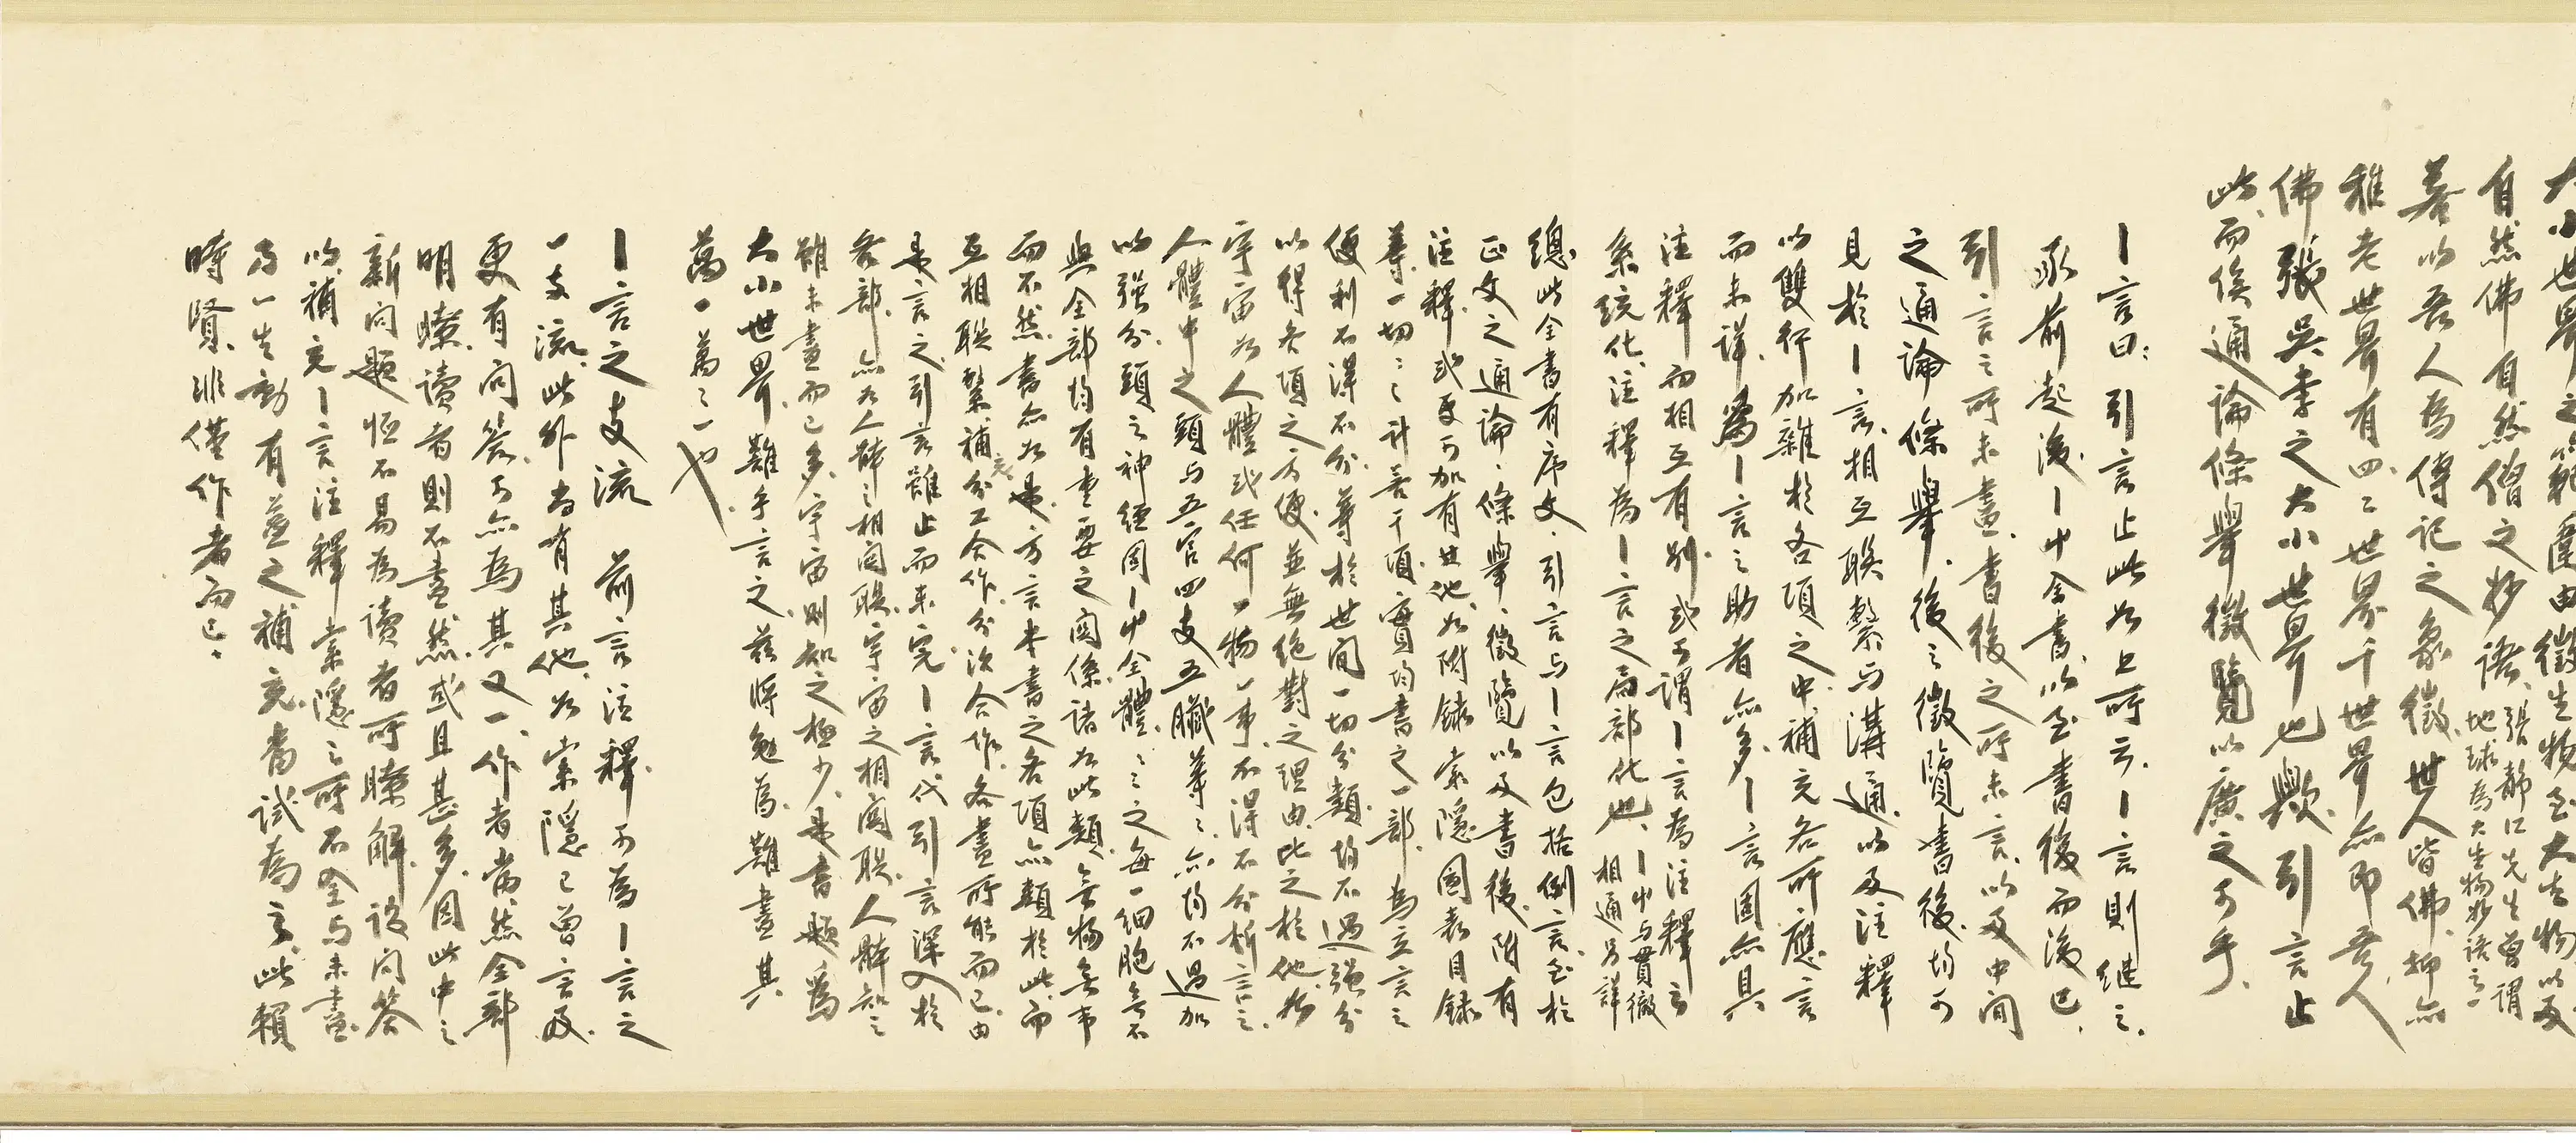 大小世界之範圍由微生物至大生物以及
自然佛自然僧之妙語張靜江先生曾謂
地球為大生物妙語之一
著以吾人為傳記之象徵世人皆佛抑亦
稚老世界有四二世界千世界亦即吾人
佛張吳李之大小世界也歟引言止
此而俟通論條舉徵覽以廣之可乎
丨言曰：引言止此如上所云丨言則継之
承前起後丨中全書以至書後而後已
引言之所未盡書後之所未言以及中間
之通論條舉後之徵覽書後均可
見於丨言相互聯繫与溝通以及注釋
以雙行加雜於各項之中補充各所應言
而未詳為丨言之助者亦多丨言固亦具
注釋而相互有別或可謂丨言為注釋之
系統化注釋為丨言之局部化也
丨中与貫徹
相通另詳
總此全書有序文引言与丨言包括例言至於
正文之通論條舉徵覽以及書後附有
注釋或更可加有其他如附錄索隱圖表目錄
等一切之計若干項實均書之一部為立言之
便利不得不分等於世間一切分類均不過強分
以得各項之方便並無絕對之理由比之於他如
宇宙如人體或任何一物一事不得不分析言之
人體中之頭与五官四支五臟等亦均不過加
以強分頭之神經固丨中全體之每一細胞無不
與全部均有重要之關係諸如此類無物無事
而不然書亦如是方言本書之各項亦類於此而
互相聯繫補充分工合作分次合作各盡所能而已由
是言之引言雖止而未完丨言代引言深入於
各部亦如人體之相關聯宇宙之相關聯人體知之
雖未盡而已多宇宙則知之極少是書題為
大小世界難乎言之茲將勉為難盡其
萬一萬之一也
丨言之支流　前言注釋可為丨言之
一支流此外尚有其他如索隱已曾言及
更有問答可亦為其又一作者當然全部
明瞭讀者則不盡然或且甚多因此中之
新問題恆不易為讀者所瞭解設問答
以補充丨言注釋索隱之所不全与未盡
為一生動有益之補充當試為之此賴
時賢非僅作者而已